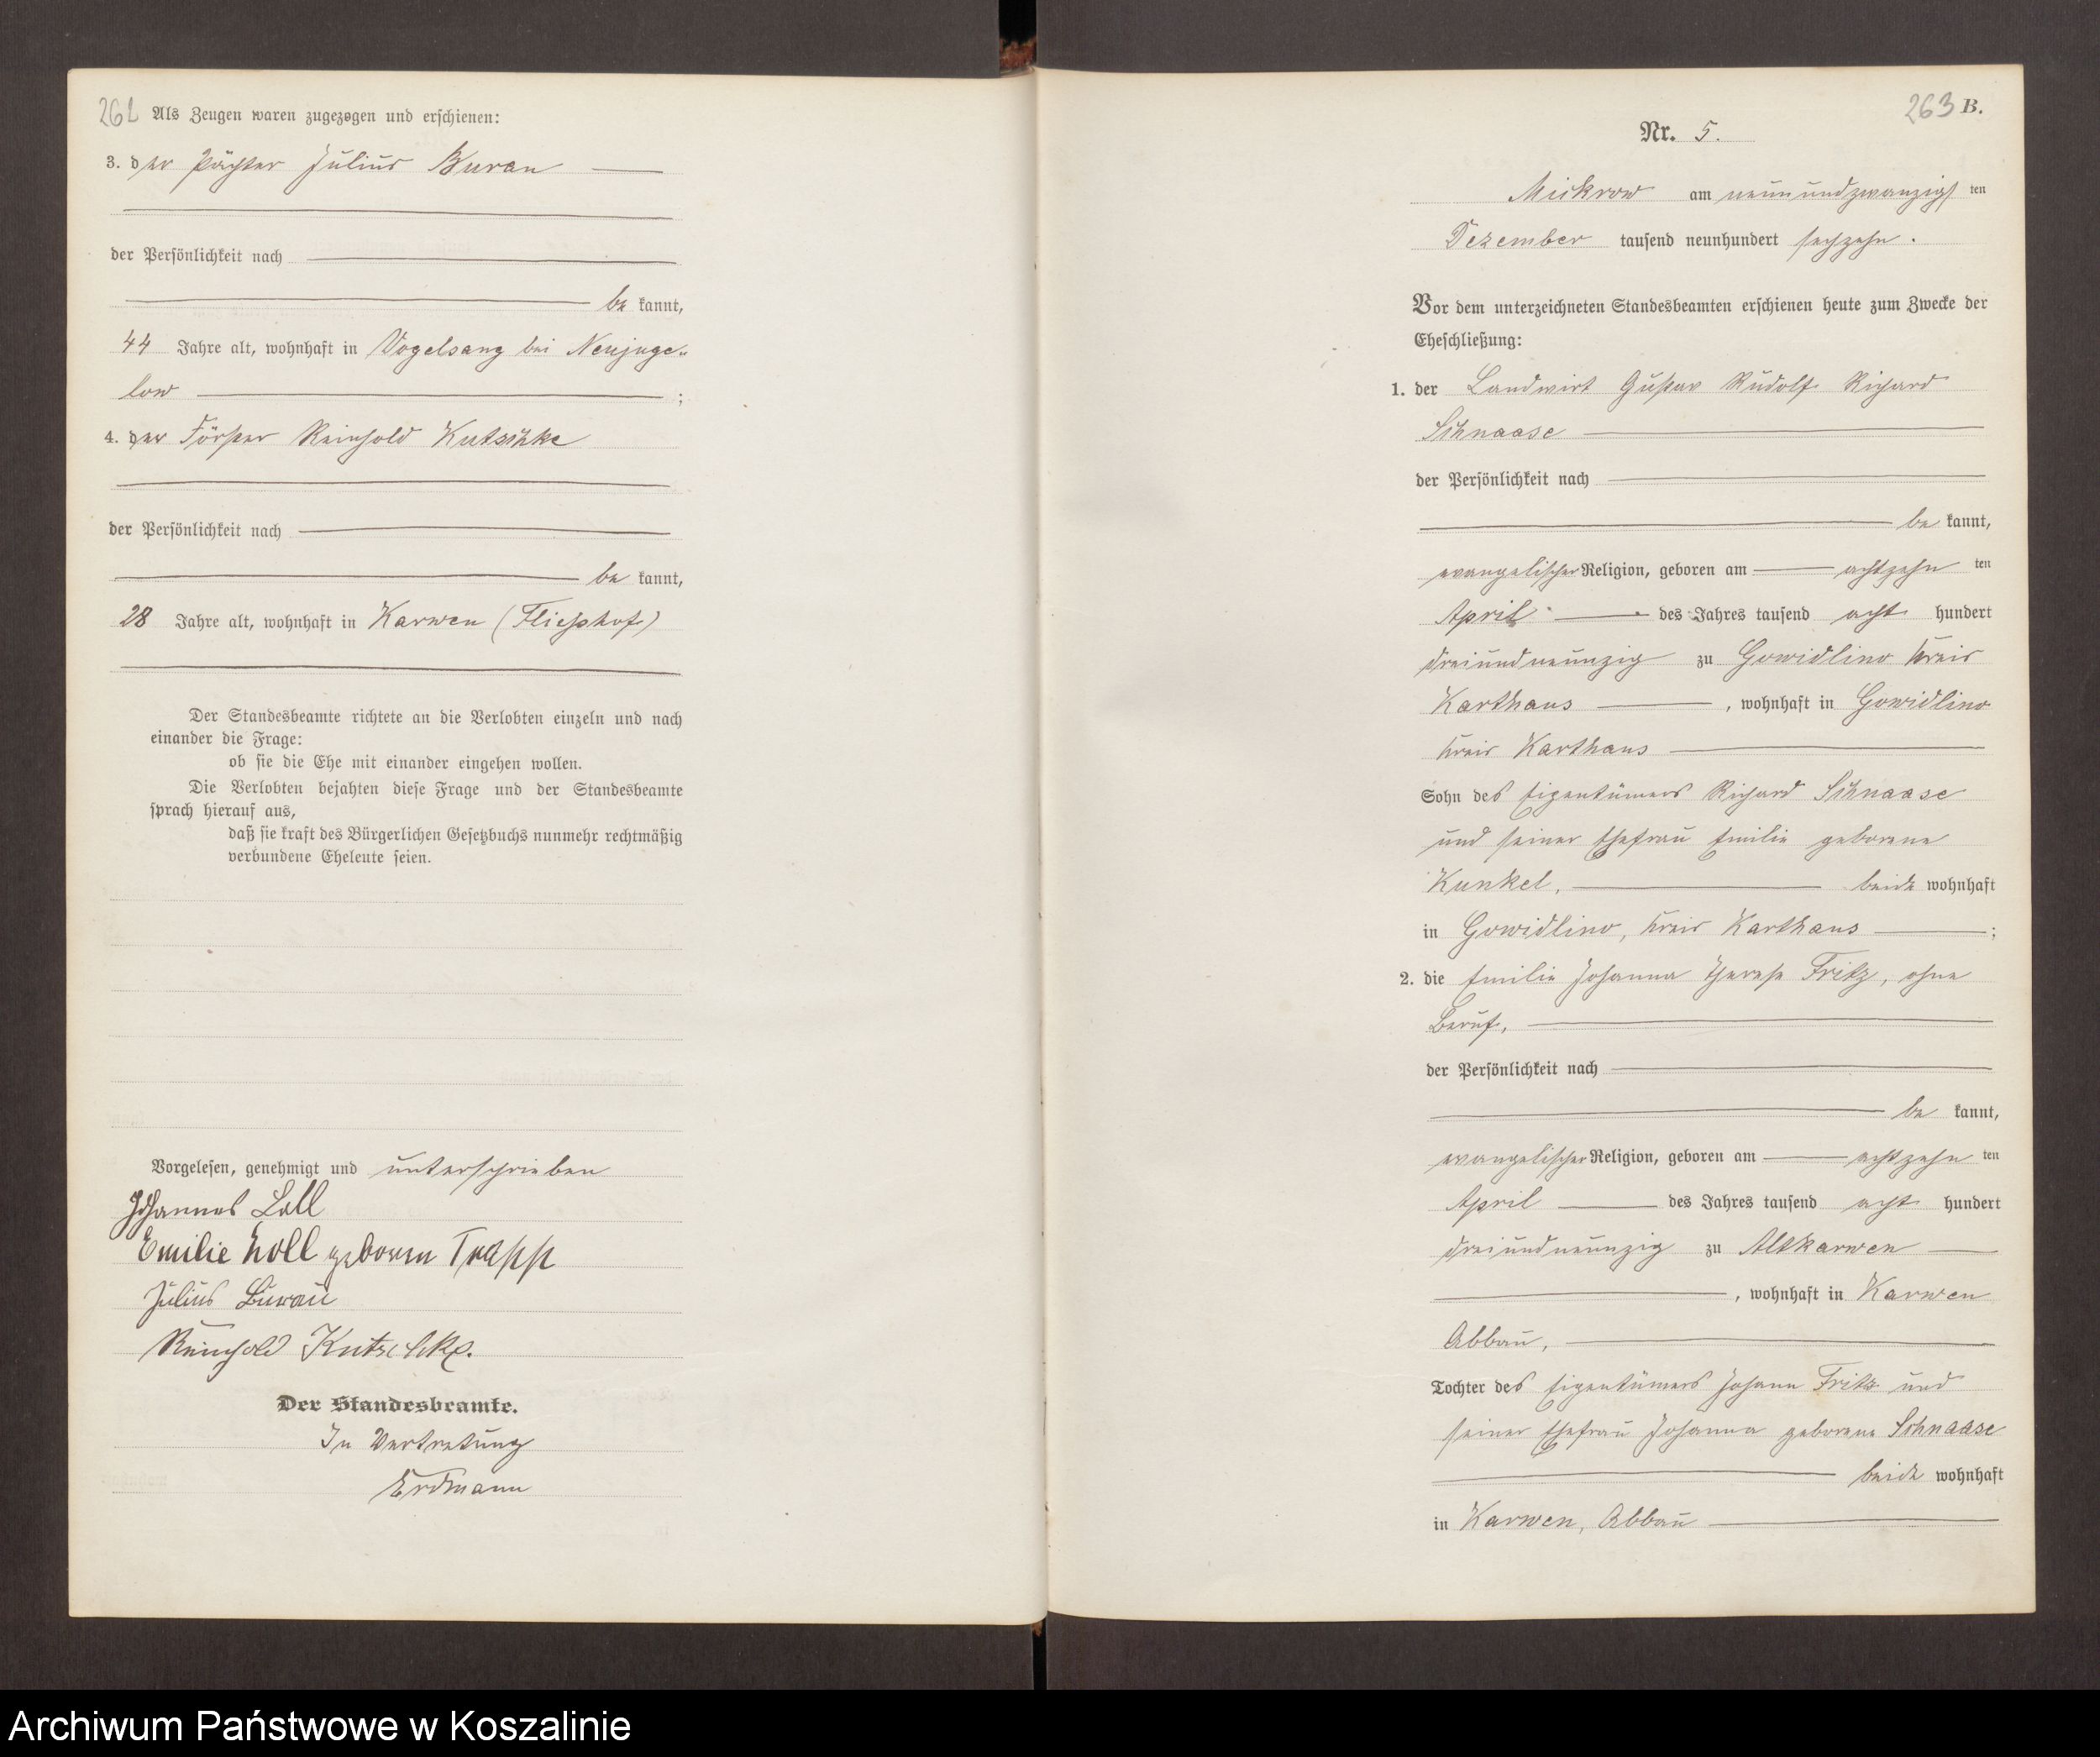 262 Als Zeugen waren zugezogen und erschienen:
3. der Pächter Julius Burau
der Persönlichkeit nach
be kannt,
44 Jahre alt, wohnhaft in Vogelsang bei Neujuge-
low ;
4. der Förster Reinhold Kutschke
der Persönlichkeit nach
be kannt,
28 Jahre alt, wohnhaft in Karwen (Fließhof)
Der Standesbeamte richtete an die Verlobten einzeln und nach
einander die Frage:
ob sie die Ehe mit einander eingehen wollen.
Die Verlobten bejahten diese Frage und der Standesbeamte
sprach hierauf aus,
daß sie kraft des Bürgerlichen Gesetzbuchs nunmehr rechtmäßig
verbundene Eheleute seien.
Vorgelesen, genehmigt und unterschrieben
Johannes
Emilie geboren Trapp
Julius Burau
Reinhold Kutschke.
Der Standesbeamte.
In Vertretung
Erdmann
263 B.
Nr. 5.
Mickrow am neunundzwanzigsten
Dezember tausend neunhundert sechzehn.
Vor dem unterzeichneten Standesbeamten erschienen heute zum Zwecke der
Eheschließung:
1. der Landwirt Gustav Rudolf Richard
Schnaase
der Persönlichkeit nach
be kannt,
evangelischer Religion, geboren am achtzehn ten
April des Jahres tausend acht hundert
dreiundneunzig zu Gowidlino Kreis
Karthaus , wohnhaft in Gowidlino
Kreis Karthaus
Sohn des Eigentümers Richard Schnaase
und seiner Ehefrau Emilie geborene
Kunkel, beide wohnhaft
in Gowidlino, Kreis Karthaus ;
2. die Emilie Johanna Therese Fritz, ohne
Beruf,
der Persönlichkeit nach
be kannt,
evangelischer Religion, geboren am achtzehn ten
April des Jahres tausend acht hundert
dreiundneunzig zu Altkarwen
, wohnhaft in Karwen
Abbau,
Tochter des Eigentümers Johann Fritz und
seiner Ehefrau Johanna geborene Schnaase
beide wohnhaft
in Karwen, Abbau
Archiwum Państwowe w Koszalinie